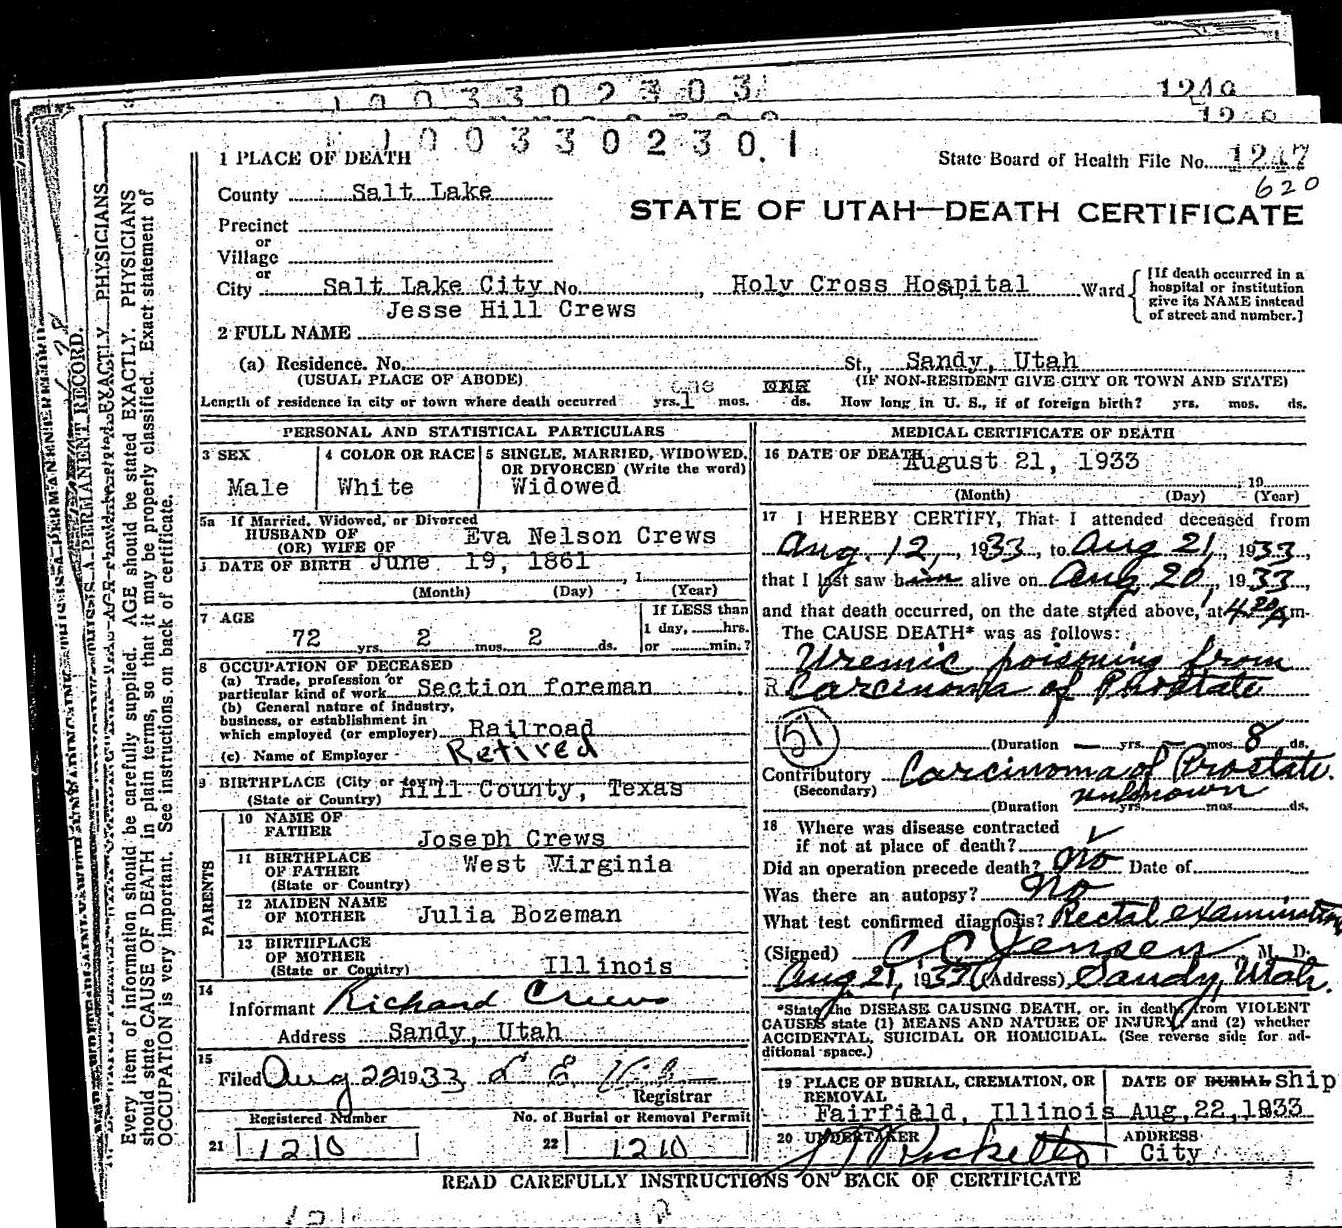 1003302303
1249
1003302301
1 PLACE OF DEATH
State Board of Health File No. 1247
620
County Salt Lake
STATE OF UTAH—DEATH CERTIFICATE
Precinct
or
Village
or
City Salt Lake City No. , Holy Cross Hospital Ward
[If death occurred in a hospital or institution give its NAME instead of street and number.]
Jesse Hill Crews
2 FULL NAME
(a) Residence. No. St., Sandy, Utah
(USUAL PLACE OF ABODE) (IF NON-RESIDENT GIVE CITY OR TOWN AND STATE)
one
Length of residence in city or town where death occurred yrs. 1 mos. ds. How long in U. S., if of foreign birth? yrs. mos. ds.
PERSONAL AND STATISTICAL PARTICULARS
3 SEX
Male
4 COLOR OR RACE
White
5 SINGLE, MARRIED, WIDOWED, OR DIVORCED (Write the word)
Widowed
5a If Married, Widowed, or Divorced
HUSBAND OF
(OR) WIFE OF Eva Nelson Crews
DATE OF BIRTH June 19, 1861
(Month) (Day) (Year)
7 AGE
72 yrs. 2 mos. 2 ds.
If LESS than
1 day, hrs.
or min.?
8 OCCUPATION OF DECEASED
(a) Trade, profession or
particular kind of work Section foreman
(b) General nature of industry,
business, or establishment in
which employed (or employer) Railroad
(c) Name of Employer Retired
9 BIRTHPLACE (City or town) Hill County, Texas
(State or Country)
PARENTS
10 NAME OF
FATHER Joseph Crews
11 BIRTHPLACE
OF FATHER West Virginia
(State or Country)
12 MAIDEN NAME
OF MOTHER Julia Bozeman
13 BIRTHPLACE
OF MOTHER
(State or Country) Illinois
14
Informant Richard Crews
Address Sandy, Utah
15
Filed Aug 22 1933
Registrar
Registered Number No. of Burial or Removal Permit
21 1210 22 1210
MEDICAL CERTIFICATE OF DEATH
16 DATE OF DEATH August 21, 1933
19
(Month) (Day) (Year)
17 I HEREBY CERTIFY, That I attended deceased from
Aug. 12, 1933, to Aug 21, 1933,
that I last saw him alive on Aug 20, 1933,
and that death occurred, on the date stated above, at 4 20 A m.
The CAUSE DEATH* was as follows:
Uremic poisoning from
Carcinoma of Prostate
51
(Duration — yrs. — mos. 8 ds.
Contributory Carcinoma of Prostate.
(Secondary)
unknown
(Duration yrs. mos. ds.
18 Where was disease contracted
if not at place of death?
Did an operation precede death? No Date of
Was there an autopsy? No
What test confirmed diagnosis? Rectal examination
(Signed) C C Jensen M. D.
Aug. 21, 1933 (Address) Sandy, Utah.
*State the DISEASE CAUSING DEATH, or, in deaths from VIOLENT
CAUSES state (1) MEANS AND NATURE OF INJURY and (2) whether
ACCIDENTAL, SUICIDAL OR HOMICIDAL. (See reverse side for ad-
ditional space.)
19 PLACE OF BURIAL, CREMATION, OR
REMOVAL
Fairfield, Illinois
DATE OF BURIAL ship
Aug, 22, 1933
20 UNDERTAKER
Ricketts
ADDRESS
City
READ CAREFULLY INSTRUCTIONS ON BACK OF CERTIFICATE
Every item of information should be carefully supplied. AGE should be stated EXACTLY. PHYSICIANS
should state CAUSE OF DEATH in plain terms, so that it may be properly classified. Exact statement of
OCCUPATION is very important. See instructions on back of certificate.